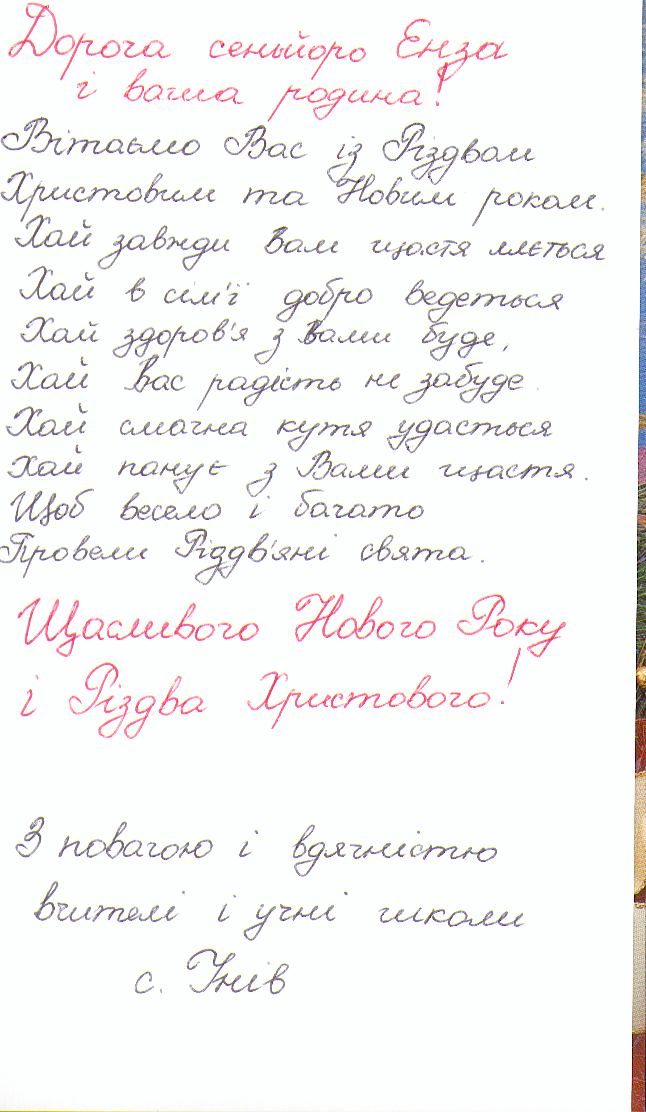 Дорога сеньйоро Енза
і ваша родина!
Вітаємо Вас із Різдвом
Христовим та Новим роком.
Хай завжди вам щастя ллється
Хай в сім'ї добро ведеться
Хай здоров'я з вами буде,
Хай вас радість не забуде.
Хай смачна кутя удасться
Хай панує з Вами щастя.
Щоб весело і багато
Провели Різдв'яні свята.
Щасливого Нового Року
і Різдва Христового!
З повагою і вдячністю
вчителі і учні школи
с. Унів